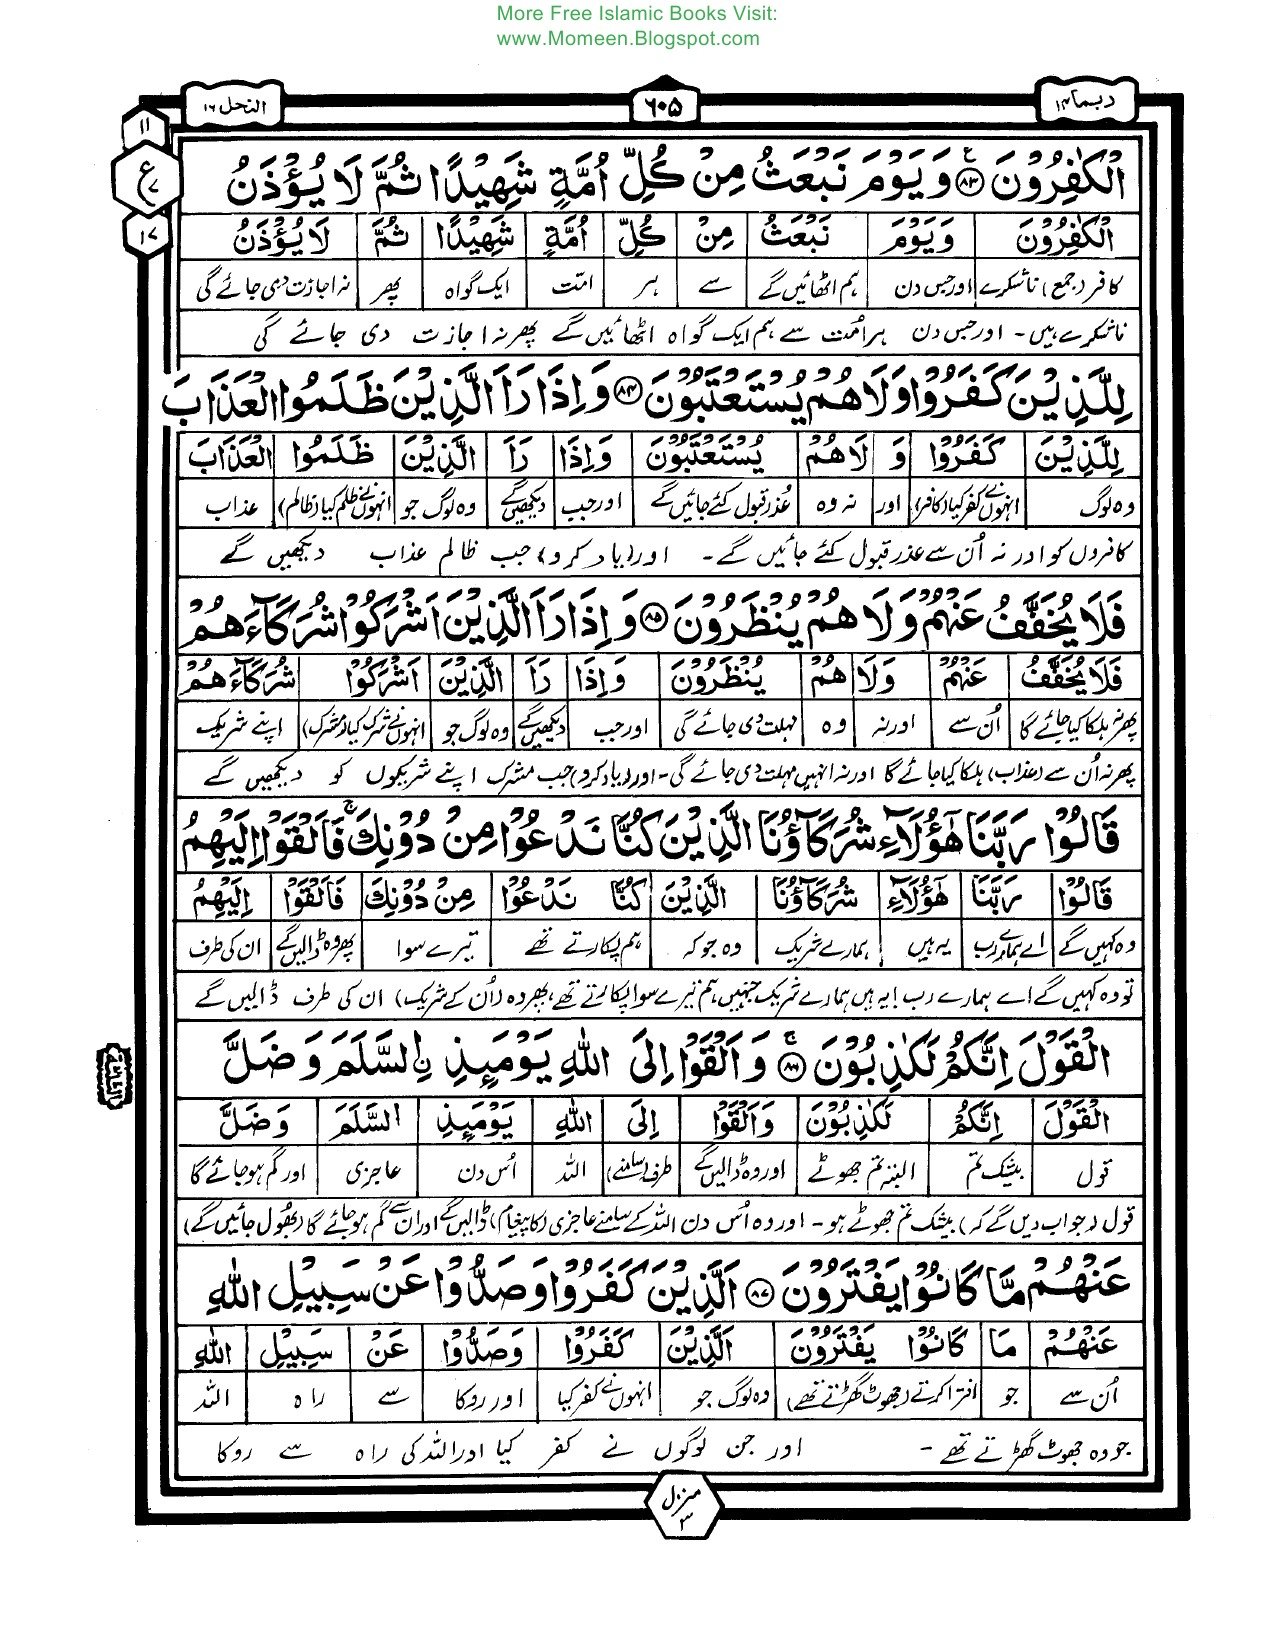 More Free Islamic Books Visit:
www.Momeen.Blogspot.com
ربما ۱۴
۶۰۵
النحل ۱۶
۱۱
ع
۷
۱۷
الْكٰفِرُوْنَ ﴿۸۳﴾ وَ يَوْمَ نَبْعَثُ مِنْ كُلِّ اُمَّةٍ شَهِيْدًا ثُمَّ لَا يُؤْذَنُ
الْكٰفِرُوْنَ وَيَوْمَ نَبْعَثُ مِنْ كُلِّ اُمَّةٍ شَهِيْدًا ثُمَّ لَا يُؤْذَنُ
کافر (جمع) ناشکرے اور جس دن ہم اٹھائیں گے سے ہر امت ایک گواہ پھر نہ اجازت دی جائے گی
ناشکرے ہیں۔ اور جس دن ہر اُمت سے ہم ایک گواہ اٹھائیں گے پھر نہ اجازت دی جائے گی
لِلَّذِيْنَ كَفَرُوْا وَلَا هُمْ يُسْتَعْتَبُوْنَ ﴿۸۴﴾ وَ اِذَا رَاَ الَّذِيْنَ ظَلَمُوا الْعَذَابَ
لِلَّذِيْنَ كَفَرُوْا وَ لَا هُمْ يُسْتَعْتَبُوْنَ وَاِذَا رَاَ الَّذِيْنَ ظَلَمُوا الْعَذَابَ
وہ لوگ انہوں نے کفر کیا (کافر) اور نہ وہ عُذر قبول کئے جائیں گے اور جب دیکھیں گے وہ لوگ جو انہوں نے ظلم کیا (ظالم) عذاب
کافروں کو اور نہ اُن سے عذر قبول کئے جائیں گے۔ اور (یاد کرو) جب ظالم عذاب دیکھیں گے
فَلَا يُخَفَّفُ عَنْهُمْ وَلَا هُمْ يُنْظَرُوْنَ ﴿۸۵﴾ وَ اِذَا رَاَ الَّذِيْنَ اَشْرَكُوْا شُرَكَآءَهُمْ
فَلَا يُخَفَّفُ عَنْهُمْ وَلَا هُمْ يُنْظَرُوْنَ وَاِذَا رَاَ الَّذِيْنَ اَشْرَكُوْا شُرَكَآءَهُمْ
پھر نہ ہلکا کیا جائے گا اُن سے اور نہ وہ مہلت دی جائے گی اور جب دیکھیں گے وہ لوگ جو انہوں نے شرک کیا (مشرک) اپنے شریک
پھر نہ اُن سے (عذاب) ہلکا کیا جائے گا اور نہ انہیں مہلت دی جائے گی۔ اور (یاد کرو) جب مشرک اپنے شریکوں کو دیکھیں گے
قَالُوْا رَبَّنَا هٰٓؤُلَآءِ شُرَكَآؤُنَا الَّذِيْنَ كُنَّا نَدْعُوْا مِنْ دُوْنِكَ ۚ فَاَلْقَوْا اِلَيْهِمُ
قَالُوْا رَبَّنَا هٰٓؤُلَآءِ شُرَكَآؤُنَا الَّذِيْنَ كُنَّا نَدْعُوْا مِنْ دُوْنِكَ فَاَلْقَوْا اِلَيْهِمُ
وہ کہیں گے اے ہمارے رب یہ ہیں ہمارے شریک وہ جو کہ ہم پکارتے تھے تیرے سوا پھر وہ ڈالیں گے ان کی طرف
تو وہ کہیں گے اے ہمارے رب! یہ ہیں ہمارے شریک جنہیں ہم تیرے سوا پکارتے تھے، پھر وہ (اُن کے شریک) ان کی طرف ڈالیں گے
الْقَوْلَ اِنَّكُمْ لَكٰذِبُوْنَ ﴿۸۶﴾ وَ اَلْقَوْا اِلَى اللّٰهِ يَوْمَىِٕذِ ن السَّلَمَ وَ ضَلَّ
الْقَوْلَ اِنَّكُمْ لَكٰذِبُوْنَ وَاَلْقَوْا اِلَى اللّٰهِ يَوْمَىِٕذِ السَّلَمَ وَضَلَّ
قول بیشک تم البتہ تم جھوٹے اور وہ ڈالیں گے طرف (سامنے) اللہ اُس دن عاجزی اور گم ہو جائے گا
قول (جواب دیں گے کہ) بیشک تم جھوٹے ہو۔ اور وہ اُس دن اللہ کے سامنے عاجزی (کا پیغام) ڈالیں گے اور ان سے گم ہو جائے گا (بھُول جائیں گے)
عَنْهُمْ مَّا كَانُوْا يَفْتَرُوْنَ ﴿۸۷﴾ اَلَّذِيْنَ كَفَرُوْا وَ صَدُّوْا عَنْ سَبِيْلِ اللّٰهِ
عَنْهُمْ مَا كَانُوْا يَفْتَرُوْنَ اَلَّذِيْنَ كَفَرُوْا وَصَدُّوْا عَنْ سَبِيْلِ اللّٰهِ
اُن سے جو افترا کرتے (جھوٹ گھڑتے تھے) وہ لوگ جو انہوں نے کفر کیا اور روکا سے راہ اللہ
جو وہ جھوٹ گھڑتے تھے۔ اور جن لوگوں نے کفر کیا اور اللہ کی راہ سے روکا
منزل ۳